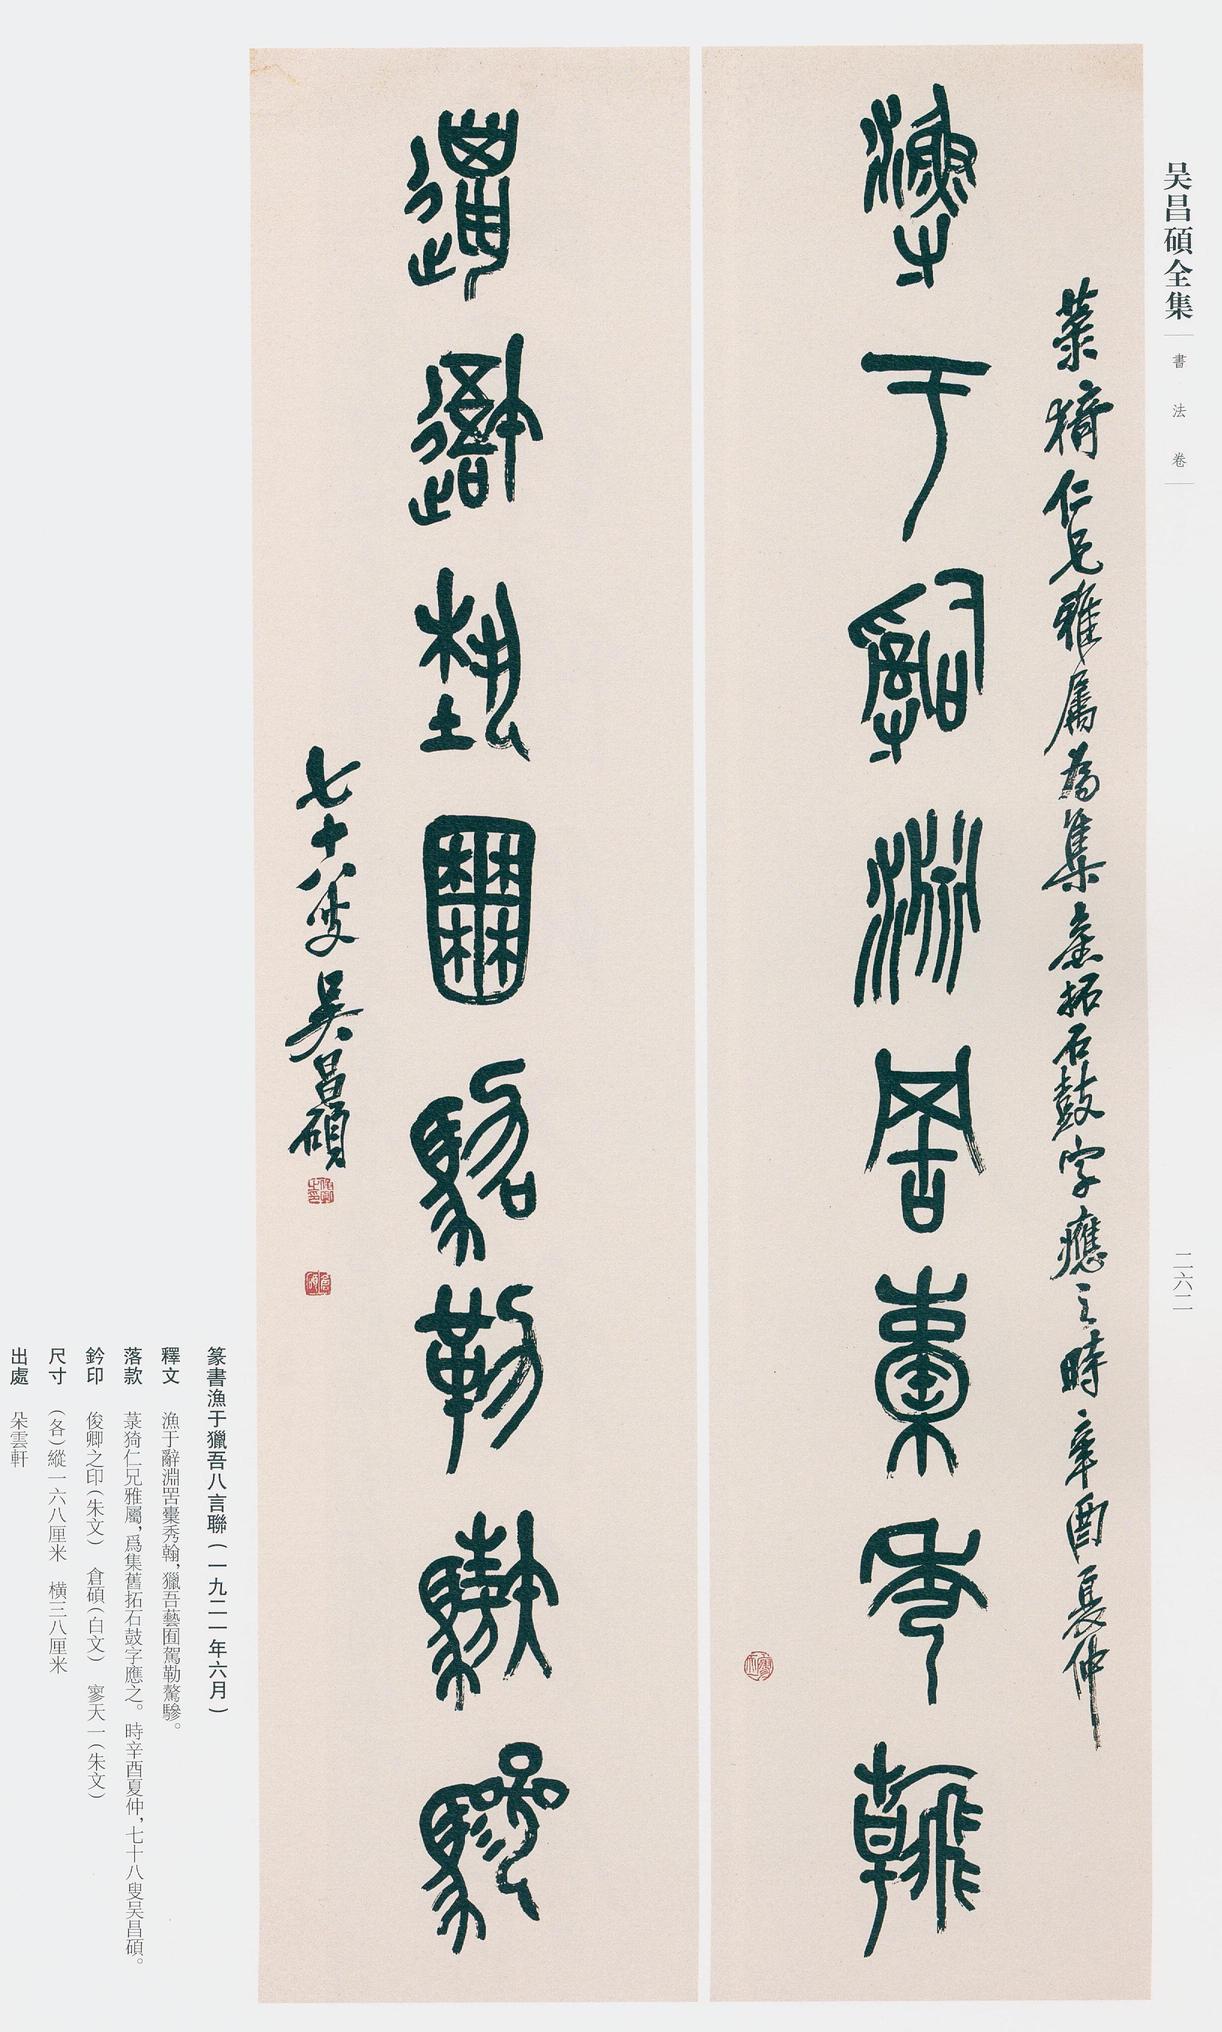 吴昌碩全集
書法卷
二六二
菉猗仁兄雅屬為集舊拓石鼓字應之時辛酉夏仲
漁于辭淵罟橐秀翰
獵吾藝囿駕勒驁驂
七十八叟吴昌碩
篆書漁于獵吾八言聯(一九二一年六月)
釋文 漁于辭淵罟橐秀翰,獵吾藝囿駕勒驁驂。
落款 菉猗仁兄雅屬,爲集舊拓石鼓字應之。時辛酉夏仲,七十八叟吴昌碩。
鈐印 俊卿之印(朱文) 倉碩(白文) 寥天一(朱文)
尺寸 (各)縱一六八厘米 横三八厘米
出處 朵雲軒